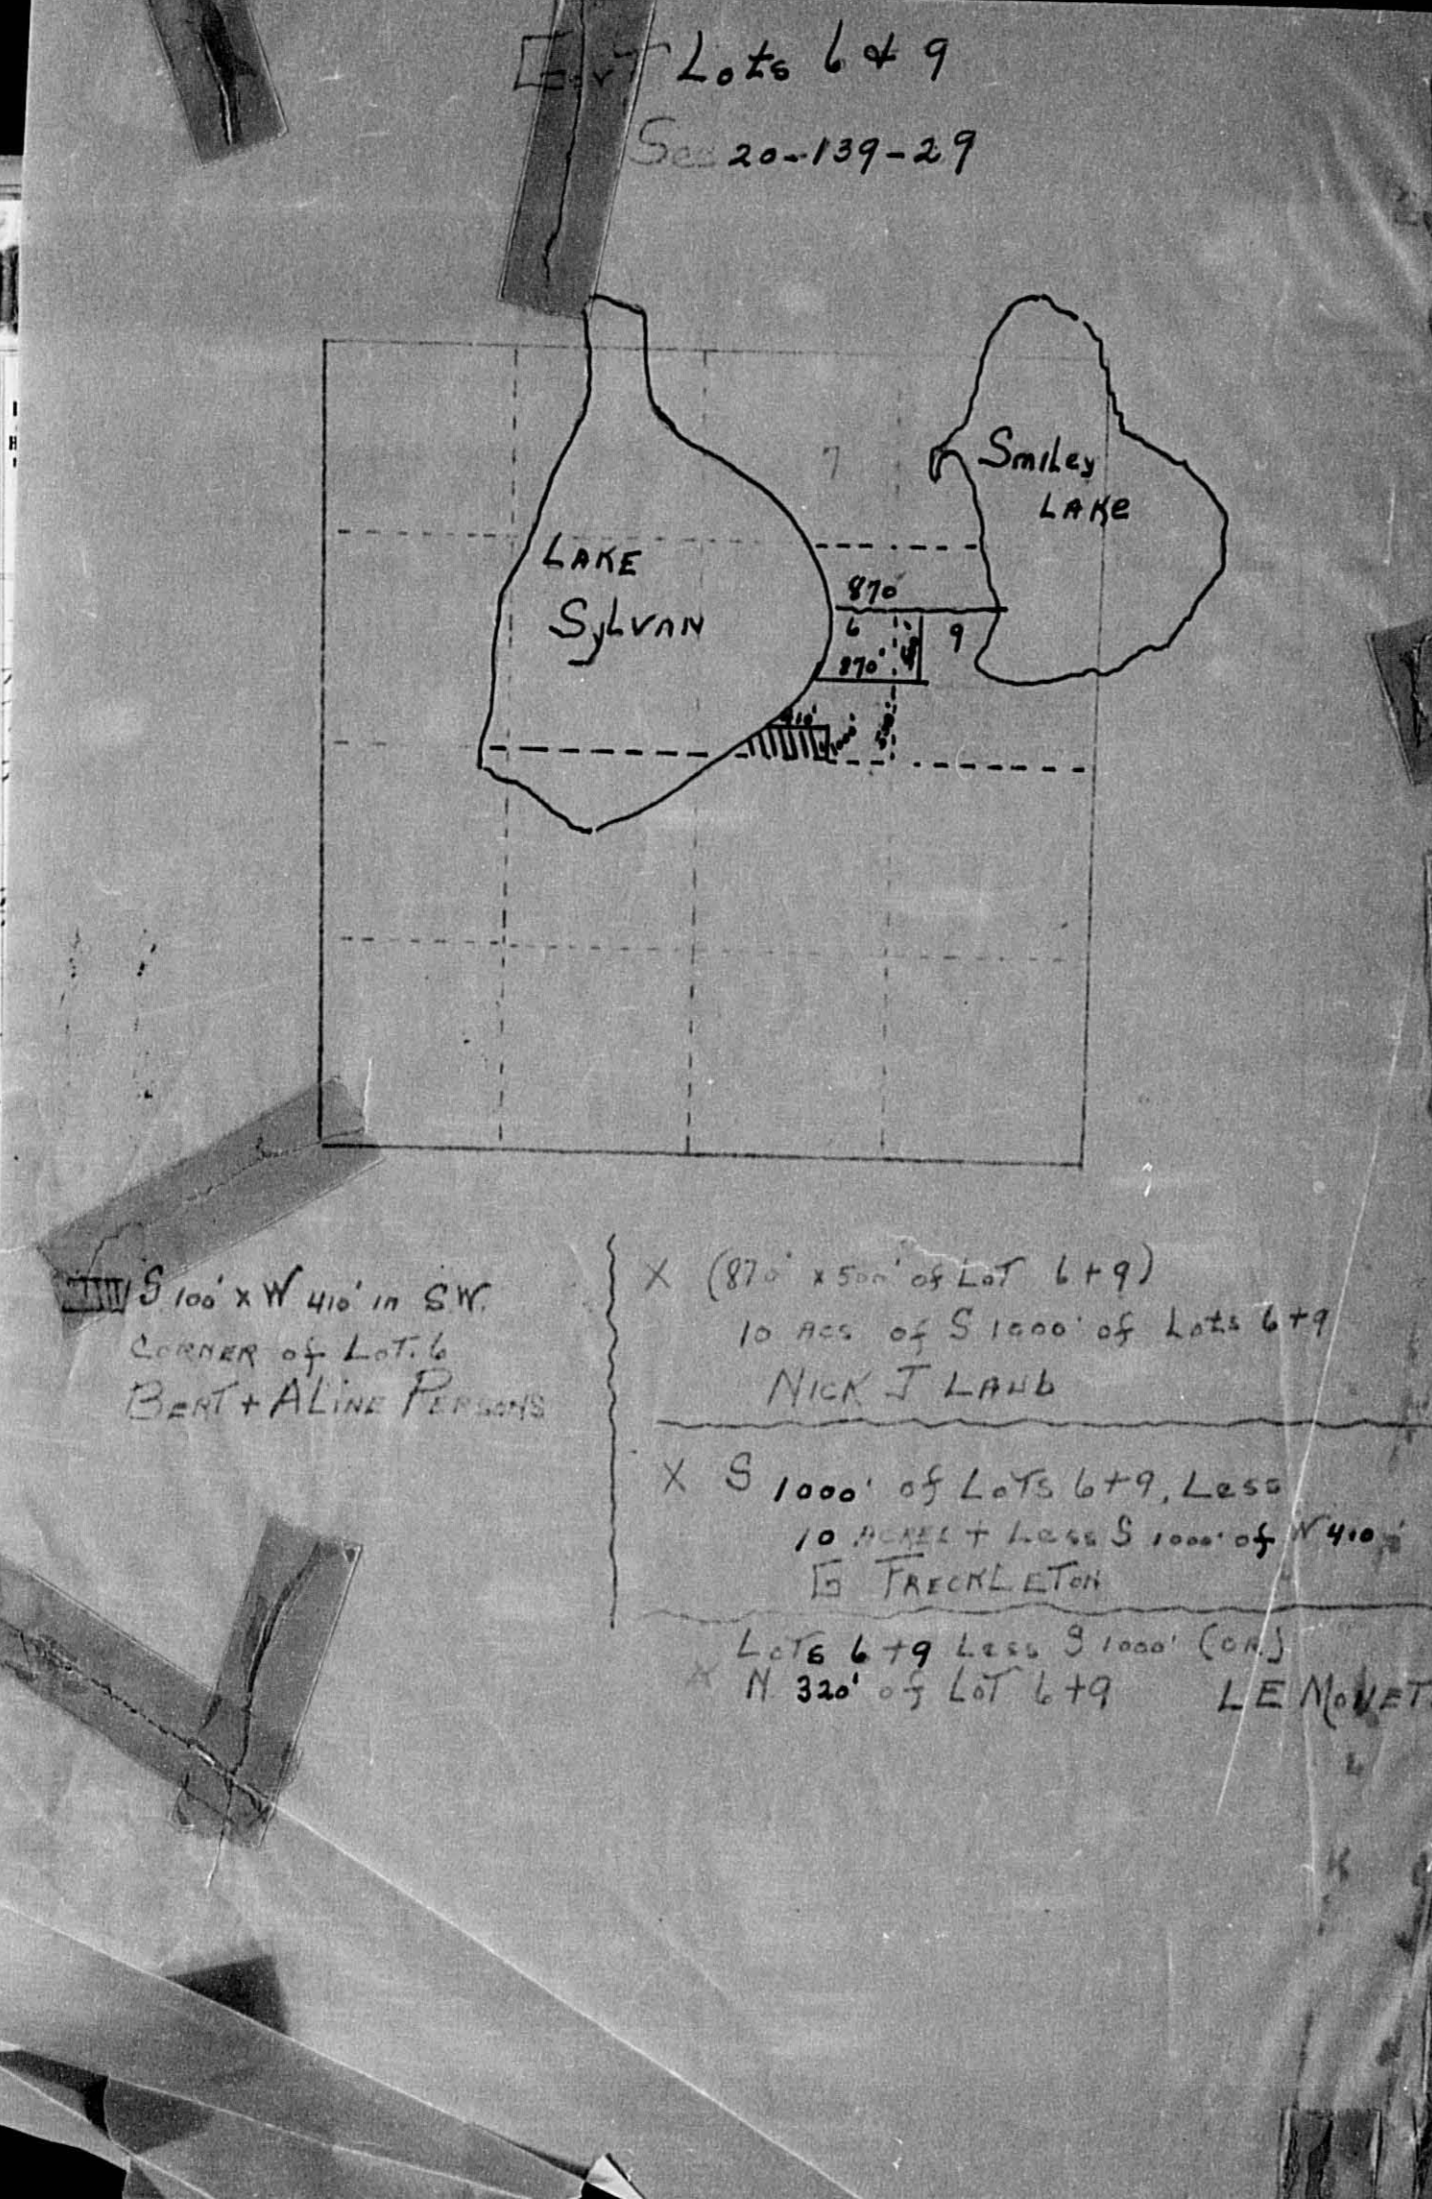 Govt Lots 6 & 9
Sec 20-139-29
7
Smiley
LAKe
LAKE
SyLvan
870'
6
9
870'
410'
1000'
S 100' x W 410' in S.W.
CORNER of LoT. 6
BERT + ALINE PERSONS
X (870' x 500' of LoT 6+9)
10 Acs of S 1000' of Lots 6+9
NICK J LAUb
X S 1000' of LoTS 6+9, Less
10 ACRES + Less S 1000' of W 410'
G FRECKLETON
LoTs 6+9 Less S 1000' (OR)
X N. 320' of LoT 6+9 LE MoNET